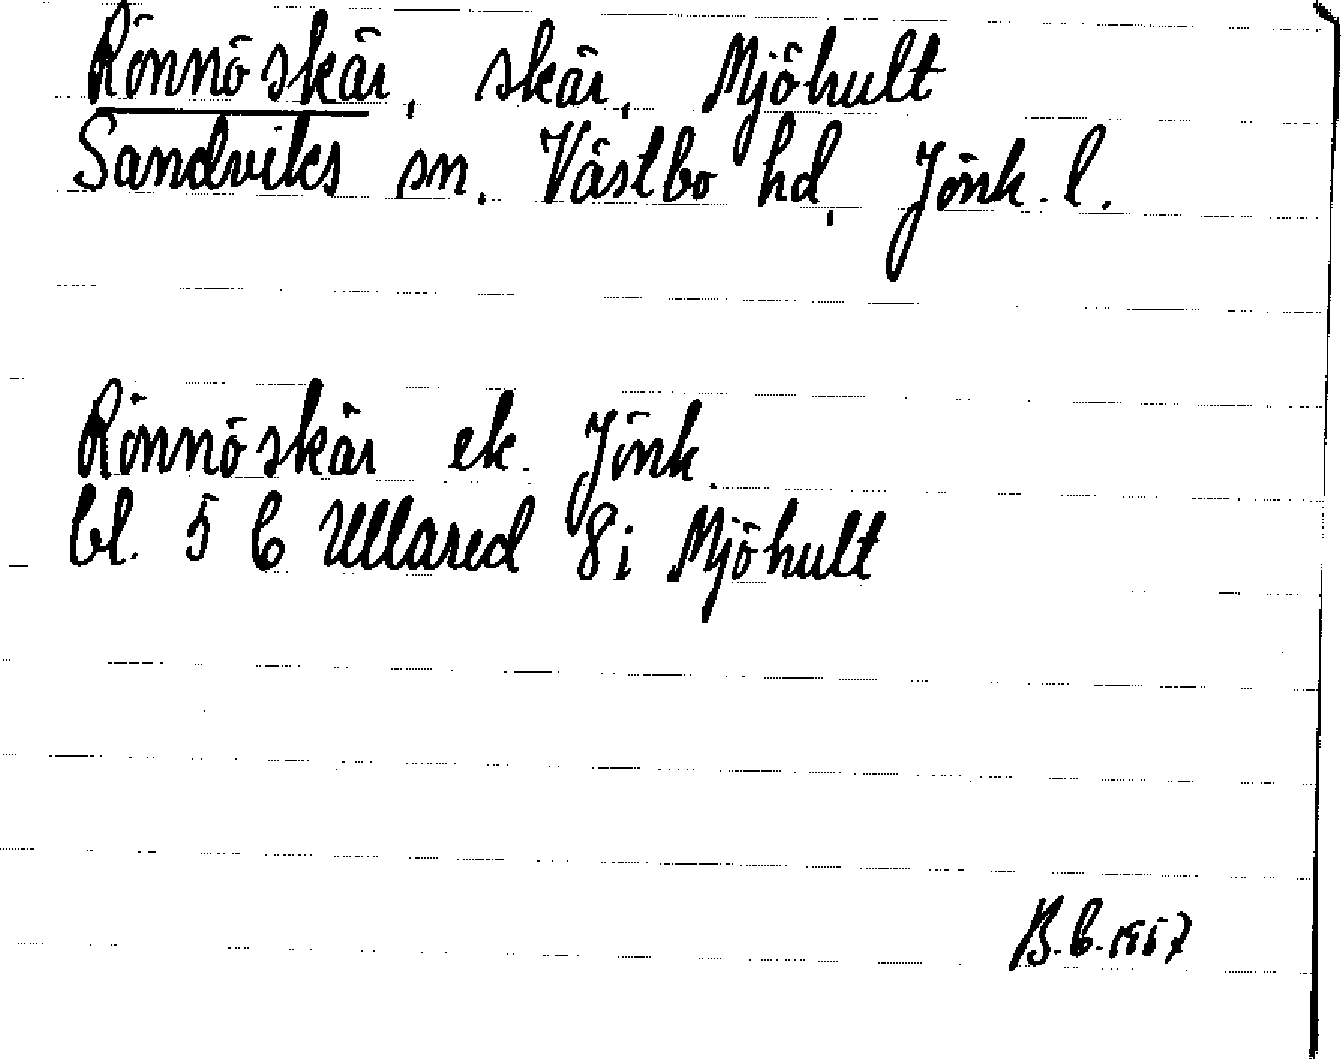 Rönnö skär, skär, Mjöhult
Sandviks sn. Västbo hd, Jönk. l.
Rönnö skär ek. Jönk.
bl. 5 C Ullared 8i Mjöhult
B.C. 1957